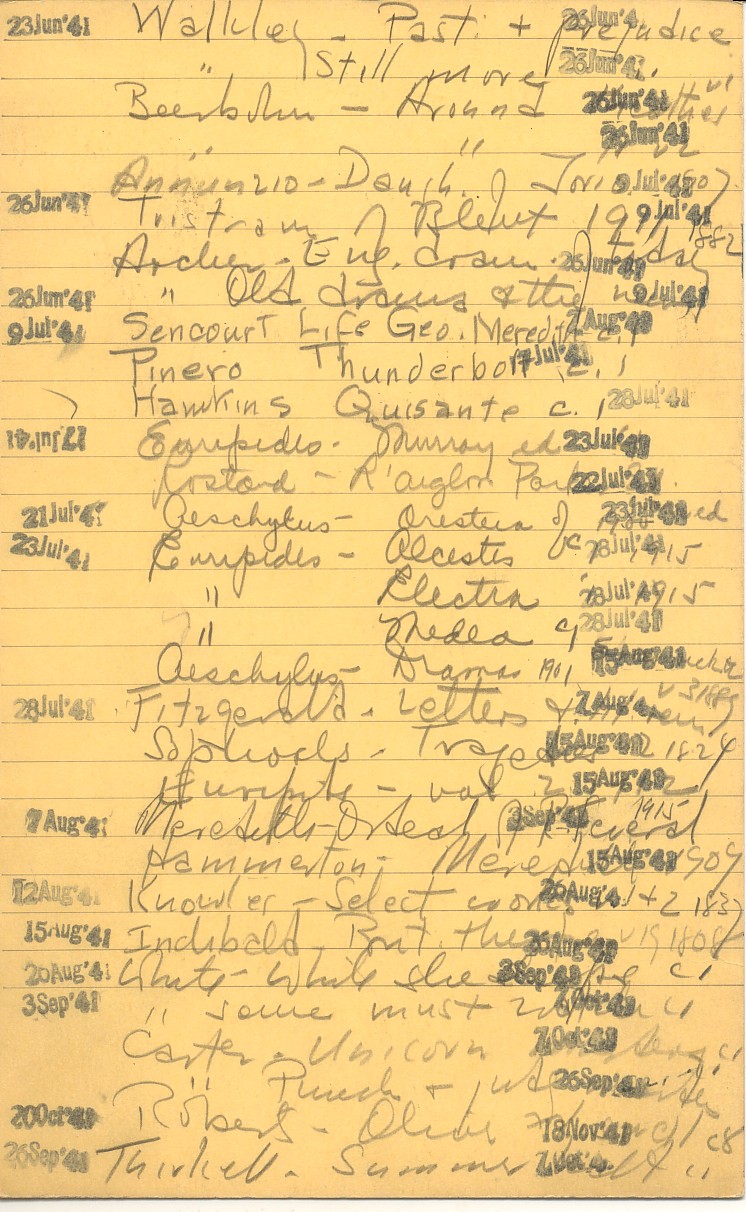 23Jun'41 Walkley - Past + prejudice 26Jun'4
" Still more 26Jun'4
Beerbohm - Around 26Jun'41 v1
" " 26Jun'41
Annunzio - Daugh. of Jorio 9Jul'41 1907
26Jun'41 Tristram of Blent 1911 9Jul'41
Archer - Eng. dram. of today 26Jun'41 1882
26Jun'41 " Old drama & the new 9Jul'41
9Jul'41 Sencourt Life Geo. Meredith c.1 7Aug'41
Pinero Thunderbolt c.1 17Jul'41
Hawkins Quisante c.1 28Jul'41
Euripides - Murray ed 23Jul'41
Rostand - L'aiglon 22Jul'41
21Jul'41 Aeschylus - Oresteia 23Jul'41 ed
23Jul'41 Euripides - Alcestis c 28Jul'41 1915
" Electra 28Jul'41 1915
" Medea c1 28Jul'41
Aeschylus - Dramas 1901 15Aug'41
28Jul'41 Fitzgerald - Letters & 7Aug'4 v 3 1889
Sophocles - Tragedies 15Aug'41 1824
Euripides - vol 2 15Aug'41
7Aug'41 Meredith - Ordeal of R Feverel 3Sep'41 1915
Hammerton - Meredith 15Aug'41 1909
12Aug'41 Knowles - Select works v1+2 26Aug'4
15Aug'41 Inchbald - Brit. theatre v19 1808 26Aug'41
20Aug'41 White - While she sleeps c1 3Sep'41
3Sep'41 " some must watch c1
Carter - Unicorn c1 7Oct'41
" Punch + Judy 26Sep'41
20Oct'41 Roberts - Oliver 18Nov'41 c8
26Sep'41 Thirkell - Summer half c1 7Oct'4